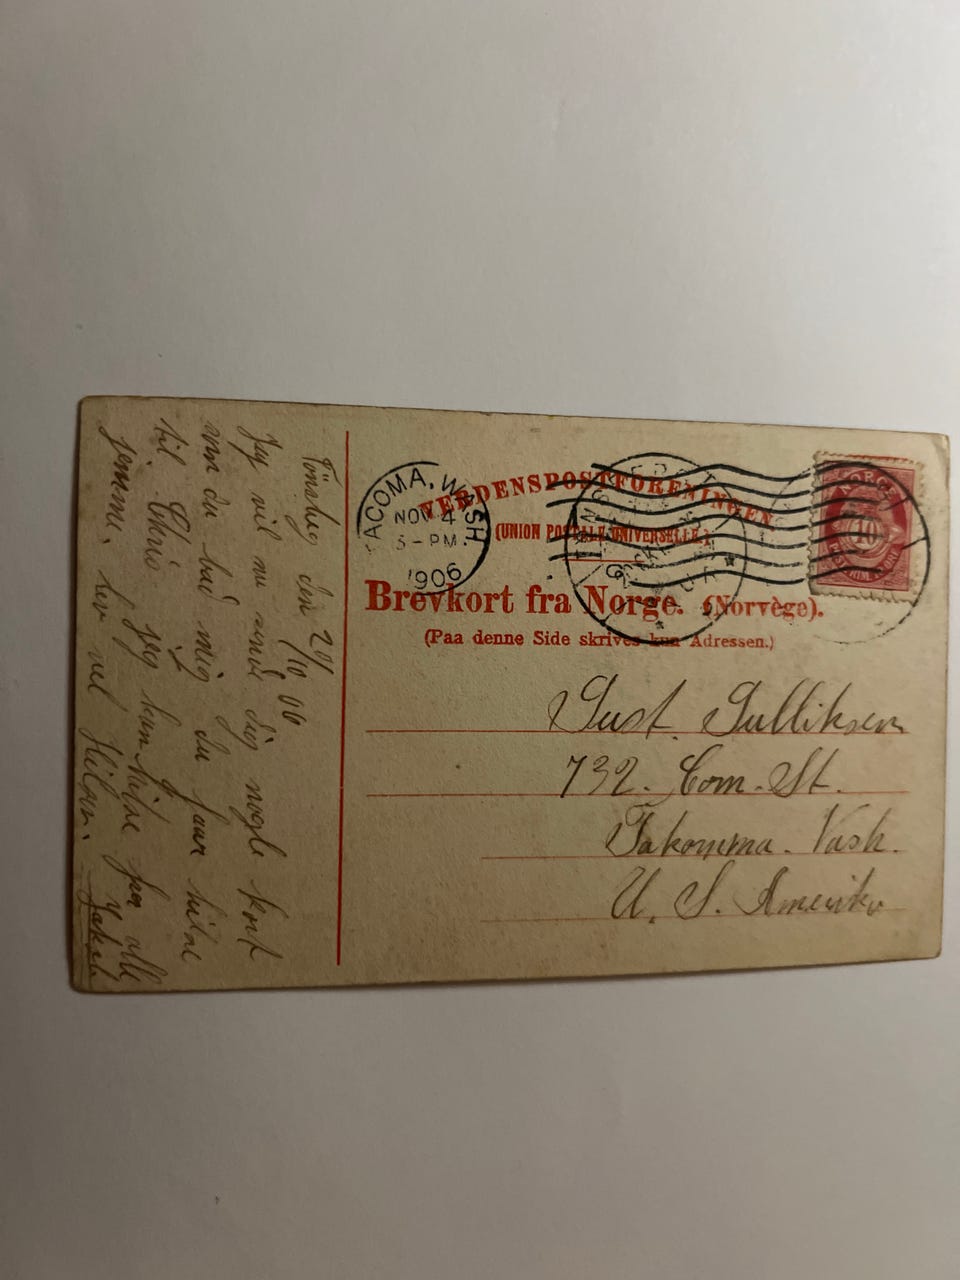 Tönsberg den 20/10 06
Jeg vil nu sende dig nogle kort
som du bad mig du faar hilse
til Chris jeg kan hilse fra alle
jemme. lev vel Hilsen. Jakob
TACOMA, WASH.
NOV 4
5-PM
1906
VERDENSPOSTFORENINGEN
(UNION POSTALE UNIVERSELLE.)
Brevkort fra Norge. (Norvège).
(Paa denne Side skrives kun Adressen.)
NORGE
10
Gust. Gulliksen
732. Com. St.
Takomma. Vash.
U. S. Amerika